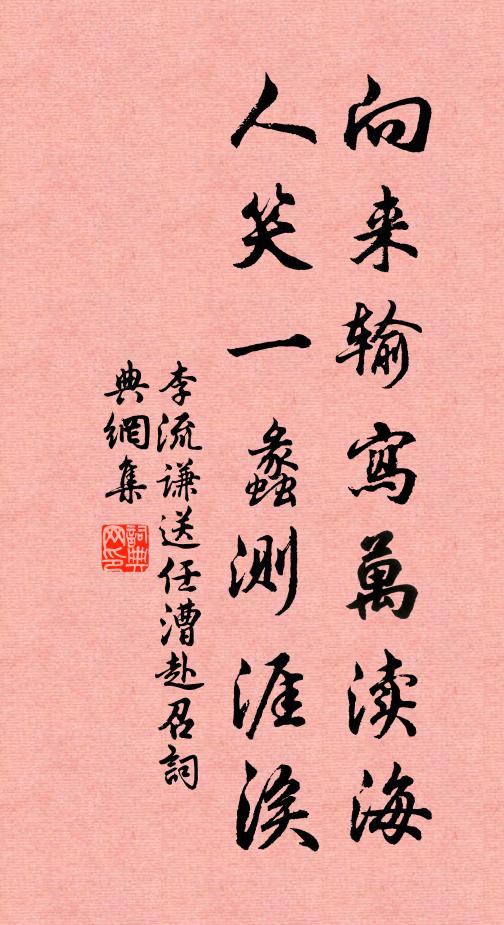 向来输寫萬渎海
人笑一蠡测涯涘
李流谦送任漕赴召詞
典網集
詞典网印